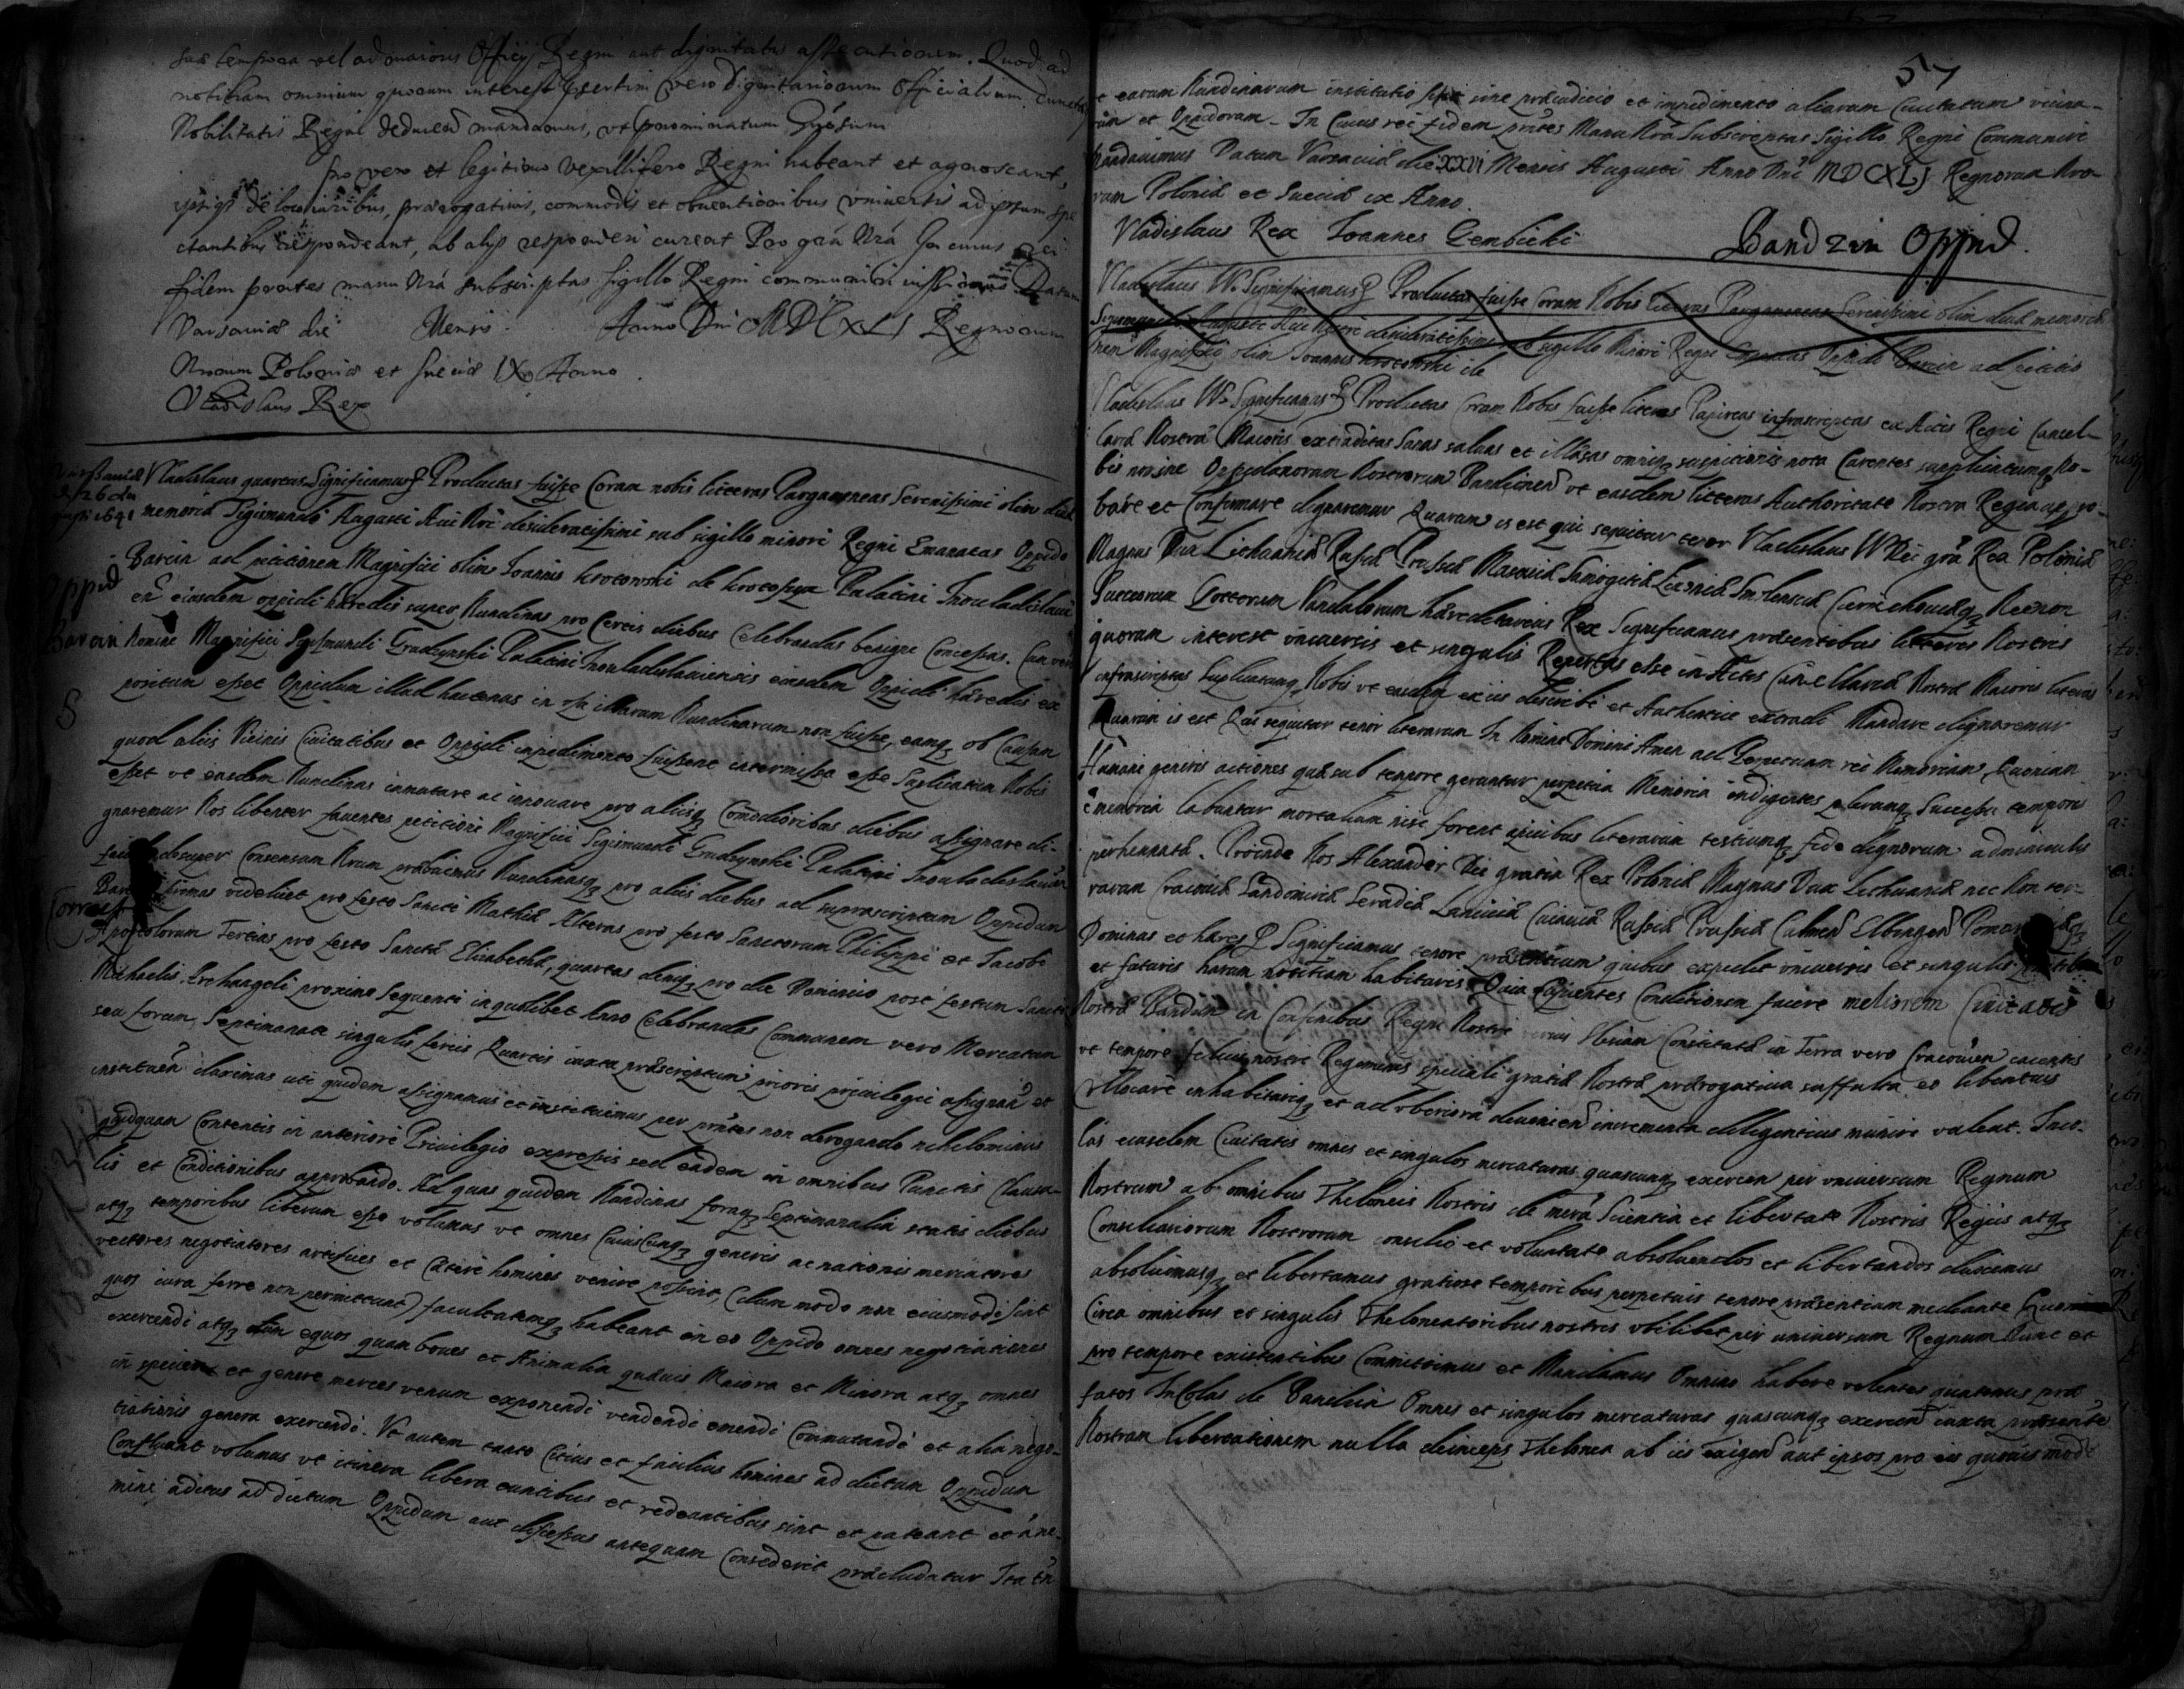 suæ tempora vel ad maioris Officij Regni aut dignitatis assecutionem. Quod ad
notitiam omnium quorum interest psertim vero dignitariorum Officialium, cunctæ
Nobilitatis Regni deducen mandamus, ut prænominatum Gnosum
pro vero et legitimo Vexillifero Regni habeant et agnoscant,
ipsiqz de iuribus, prærogativis, commodis et obventionibus universis ad ipsum spe
ctantibus respondeant, ab alijs responderi curent Pro gra Nra In cuius rei
fidem præntes manu Nra subscriptas sigillo Regni communiri iussimus Datum
Varsaviæ die Mensis Anno Dni MDCXLI Regnorum
Nrorum Poloniæ et Sueciæ IX Anno.
Vladislaus Rex
Varsaviæ
d 26 Au
gusti 1641
Vladislaus quartus Significamus Productas fuisse Coram nobis literas Pargameneas Serenissimi olim divæ
memoriæ Sigismundi Augusti Avi Nri desideratissimi sub sigillo minori Regni Emanatas Oppido
Oppid
Barcin ad petitionem Magnifici olim Ioannis Krotowski de Krotoszyn Palatini Inowladislavi
en eiusdem oppidi hæredis super Nundinas pro Certis diebus Celebrandas benigne Concessas. Cum vero
Barcin
Nomine Magnifici Sigismundi Grudzynski Palatini Inowladislaviensis eiusdem Oppidi hæredis ex
positum esset Oppidum illud hactenus in usu illarum Nundinarum non fuisse, eamqz ob Causam
S
quod aliis Vicinis Civitatibus et Oppidis impedimento fuissent intermissas esse Suplicatum Nobis
esset ut easdem Nundinas immutare ac innovare pro aliisqz Commodioribus diebus assignare di-
gnaremur Nos libenter faventes petitioni Magnifici Sigismundi Grudzynski Palatini Inowladislavien
desuper Consensum Nrum præbuimus Nundinasqz pro aliis diebus ad suprascriptum Oppidum
primas videlicet pro festo Sancti Mathiæ Alteras pro festo Sanctorum Philippi et Iacobi
Correct
Apostolorum Tertias pro festo Sanctæ Elisabethæ, quartas deniqz pro die Dominico post festum Sancti
Michaelis Archangeli proxime sequenti in quolibet Anno Celebrandas Communem vero Mercatum
seu forum Septimanale singulis feriis Quartis iuxta præscriptum prioris privilegii assignan et
instituen duximus uti quidem assignamus et instituimus per pntes non derogando nihilominus
quidquam Contentis in anteriore Privilegio expressis sed eadem in omnibus Punctis Clausu-
lis et Conditionibus approbando. Ad quas quidem Nundinas foraqz Septimanalia statis diebus
atqz temporibus liberum esse volumus ut omnes Cuiuscunqz generis ac nationis mercatores
vectores negotiatores artifices et Cæteri homines venire possint, (dum modo non eiusmodi sint
quos iura ferre non permittunt) facultatemqz habeant in eo Oppido omnes negotiationes
exercendi atqz tam equos quam boves et Animalia quævis Maiora et Minora atqz omnes
in specie et genere merces venum exponendi vendendi emendi Commutandi et alia nego-
tiationis genera exercendi. Ut autem tanto Citius et facilius homines ad dictum Oppidum
Confluant volumus ut itinera libera euntibus et redeuntibus sint et pateant et ne-
mini aditus ad dictum Oppidum aut discessus antequam Consederit præcludatur Ita tn
57
earum Nundinarum institutio sit sine præiudicio et impedimento aliarum Civitatum vicina-
rum et Oppidorum. In Cuius rei fidem pntes Manu Nra Subscriptas Sigillo Regni Communiri
mandavimus Datum Varsaviæ die XXVI Mensis Augusti Anno Dni MDCXLI Regnorum Nro-
rum Poloniæ et Sueciæ ix Anno.
Vladislaus Rex Ioannes Gembicki
Bandzin Oppid.
Vladislaus IVs Significamus Productas fuisse Coram Nobis literas Pargameneas Serenissimi olim divæ memoriæ
Sigismundi Augusti Avi Nostri desideratissimi sub sigillo Minori Regni Emanatas Oppido Barcin ad petitio
nem Magnifici olim Ioannis Krotowski de
Vladislaus IVs Significamus Productas Coram Nobis fuisse literas Papireas infrascriptas ex Actis Regni Cancel-
lariæ Nostræ Maioris extraditas Sanas salvas et illæsas omniqz suspitionis nota Carentes supplicatumqz No-
bis nomine Oppidanorum Nostrorum Bandzinen ut easdem litteras Authoritate Nostra Regia appro-
bare et Confirmare dignaremur Quarum is est qui sequitur tenor Vladislaus IV Dei gra Rex Poloniæ
Magnus Dux Lithuaniæ Russiæ Prussiæ Masoviæ Samogitiæ Livoniæ Smolensciæ Czerniechoviæqz Necnon
Suecorum Gottorum Vandalorum hæreditarius Rex Significamus præsentibus litteris Nostris
quorum interest universis et singulis Repertas esse in Actis Cancellariæ Nostræ Maioris literas
infrascriptas Suplicatumqz Nobis ut easdem ex iis describi et Authentice extradi Mandare dignaremur
Quarum is est Qui sequitur tenor literarum In Nomine Domini Amen ad Perpetuam rei Memoriam, Quoniam
Humani generis actiones quæ sub tempore geruntur perpetua Memoria indigentes plerumqz Successu temporis
e memoria labuntur mortalium nisi forent apicibus literarum testiumqz fide dignorum adminiculis
perhennatæ. Proinde Nos Alexander Dei gratia Rex Poloniæ Magnus Dux Lithuaniæ nec Non ter-
rarum Cracoviæ Sandomiriæ Siradiæ Lanciciæ Cuiaviæ Russiæ Prussiæ Culmen Elbingen
Dominus et hæres Significamus tenore præsentium quibus expedit universis et singulis
et futuris harum notitiam habituris Quia Cupientes Conditionem facere meliorem Civitatis
Nostræ Bandzin in Confinibus Regni Nostri versus Slesiam Constitutæ in Terra vero Cracovien iacentis
ut tempore felicis nostri Regiminis speciali gratiæ Nostræ prærogativa suffulta et libertatis
collocari inhabitariqz et ad uberiora devenien incrementa diligentius muniri valeat. Inco-
las eiusdem Civitatis omnes et singulos mercaturas quascunqz exercen per universum Regnum
Nostrum ab omnibus Theloneis Nostris de mera Scientia et libertate Nostris Regiis atqz
Consiliariorum Nostrorum consilio et voluntate absolvendos et libertandos duximus
absolvimusqz et libertamus gratiose temporibus perpetuis tenore præsentium mediante
Circa omnibus et singulis Theloneatoribus nostris ubilibet per universum Regnum Nunc et
pro tempore existentibus Committimus et Mandamus Omnino habere volentes quatenus præ
fatos Incolas de Bandzin Omnes et singulos mercaturas quascunqz exercen iuxta præsente
Nostram libertationem nulla deinceps Thelonea ab iis exigen aut ipsos pro eis quovis modo